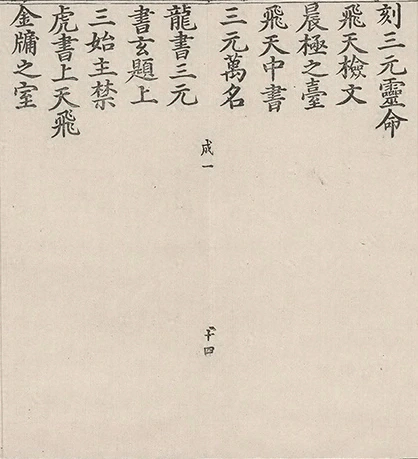 刻三元靈命
飛天檢文
晨極之臺
飛天中書
三元萬名
成一
十四
龍書三元
書玄題上
三始主禁
虎書上天飛
金牗之室